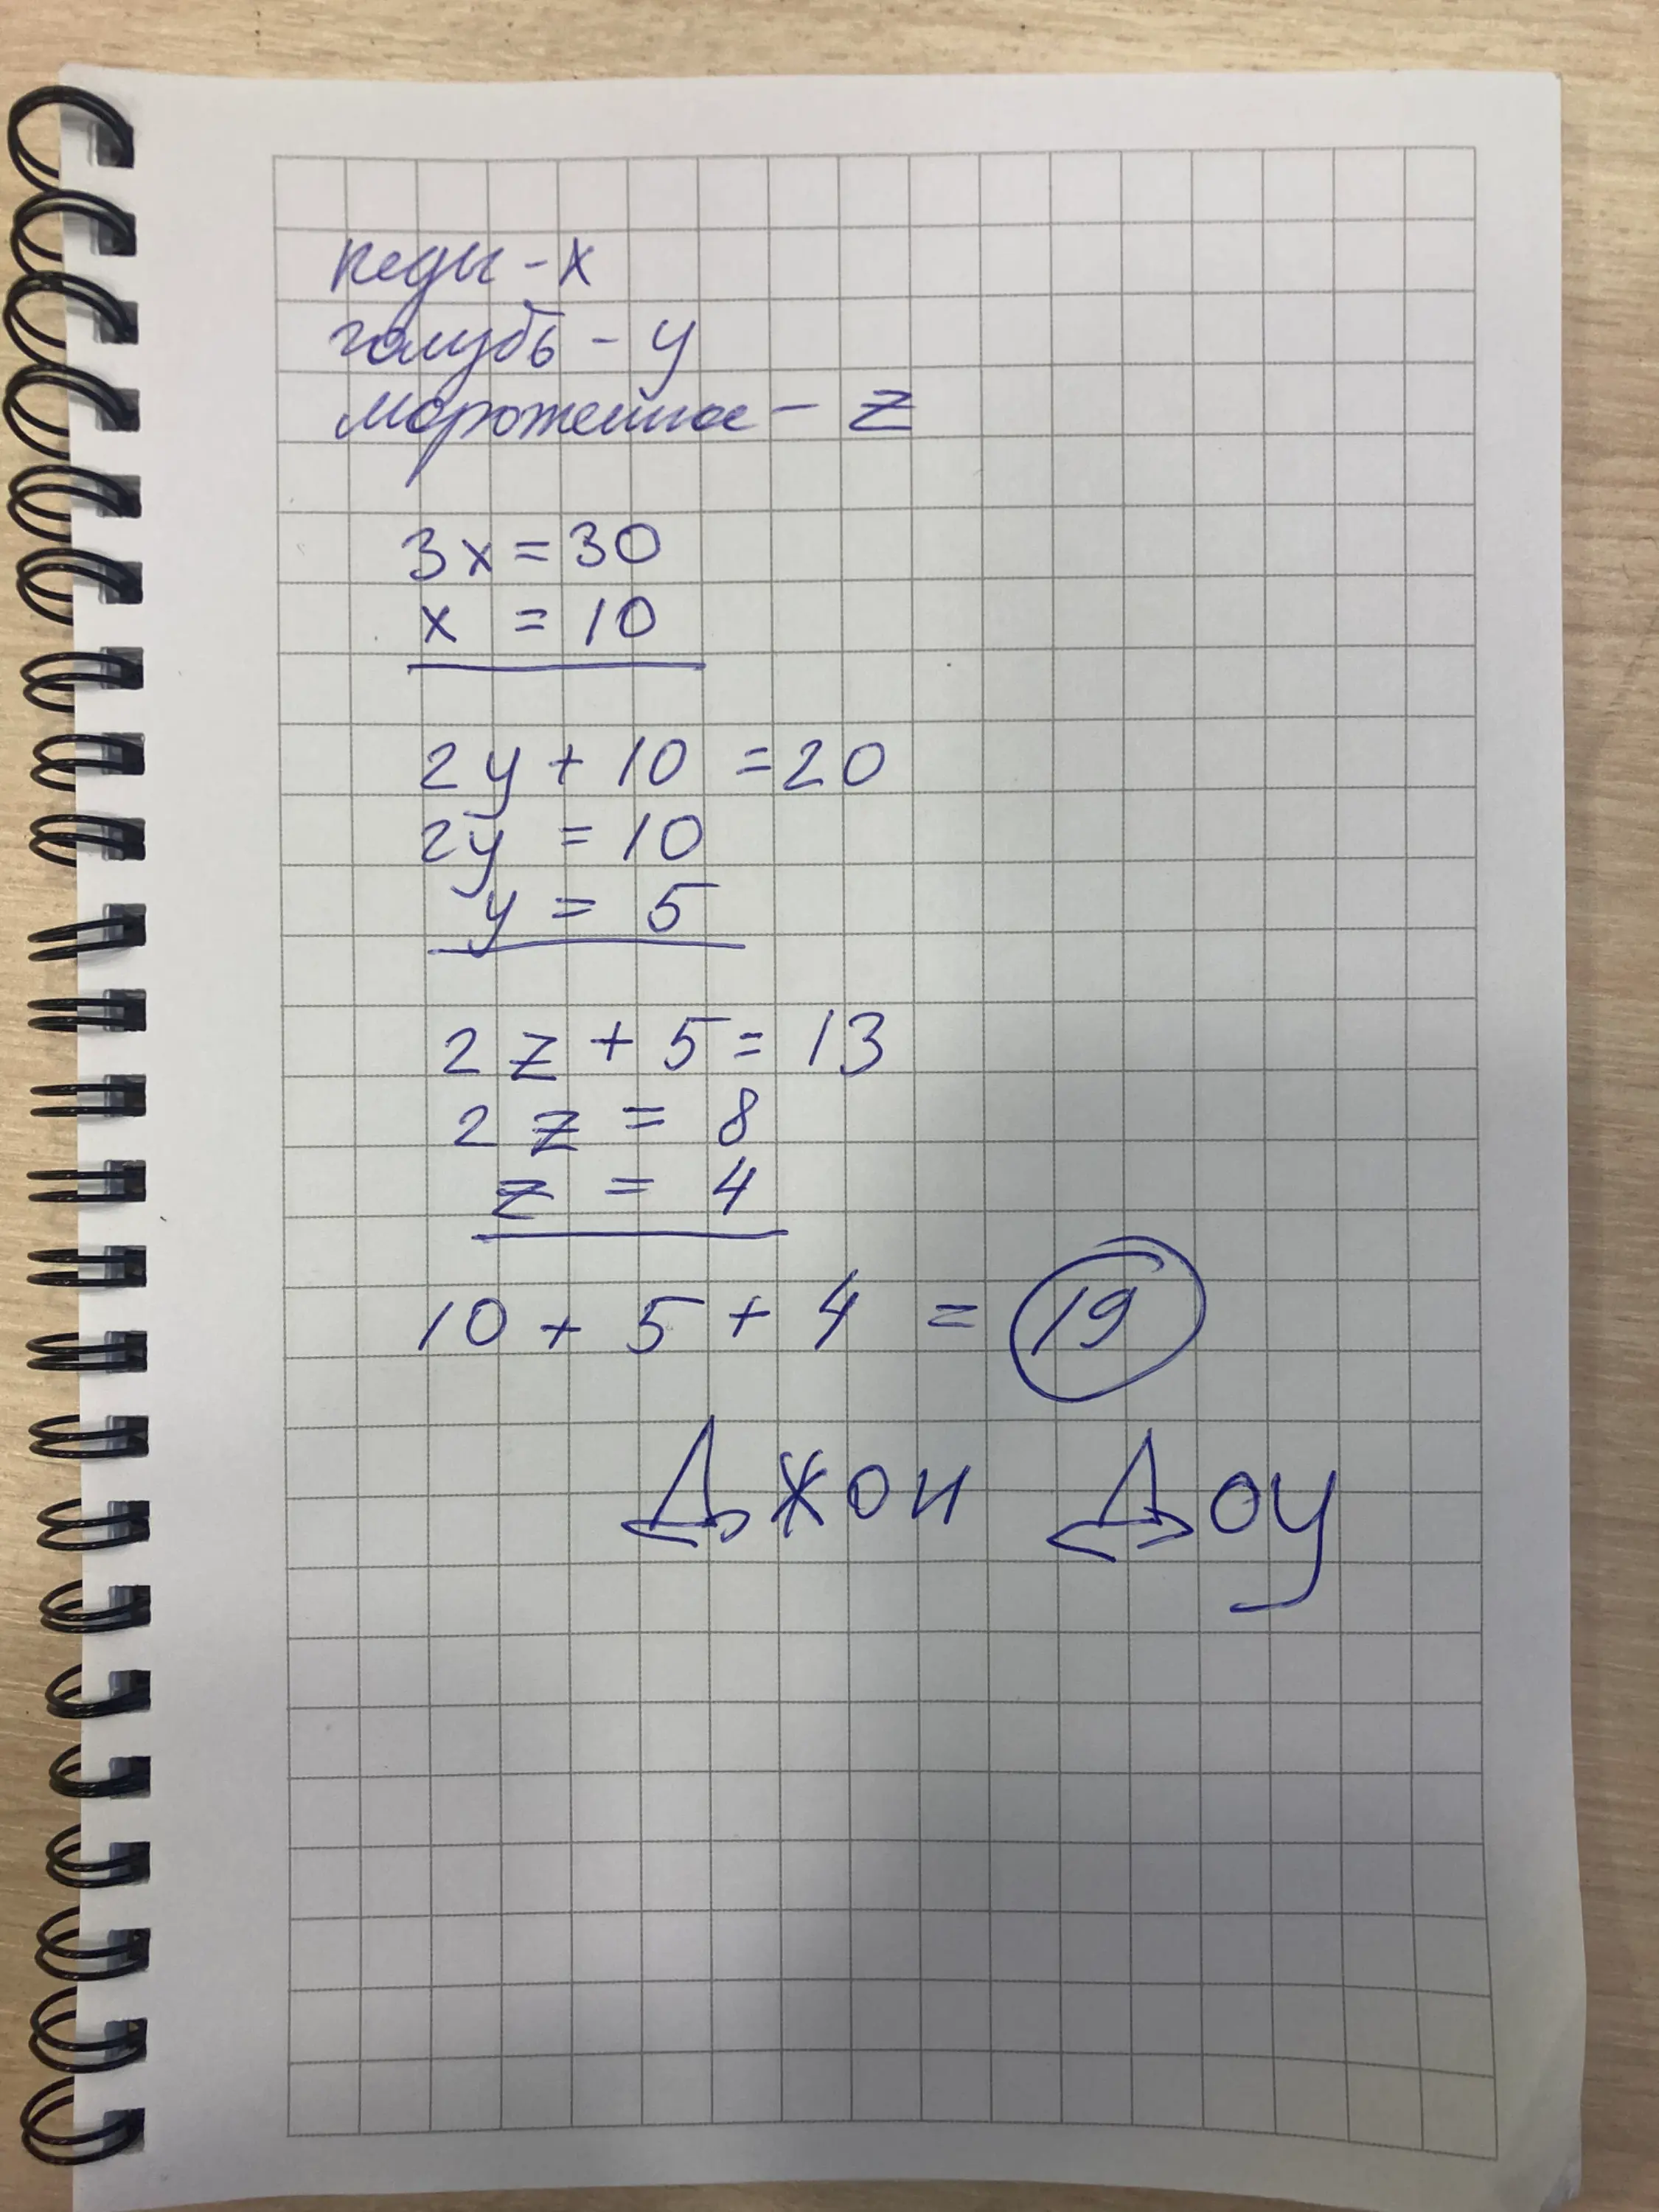 кеды - x
голубь - y
мороженное - z
3x = 30
x = 10
2y + 10 = 20
2y = 10
y = 5
2z + 5 = 13
2z = 8
z = 4
10 + 5 + 4 = 19
Джон Доу